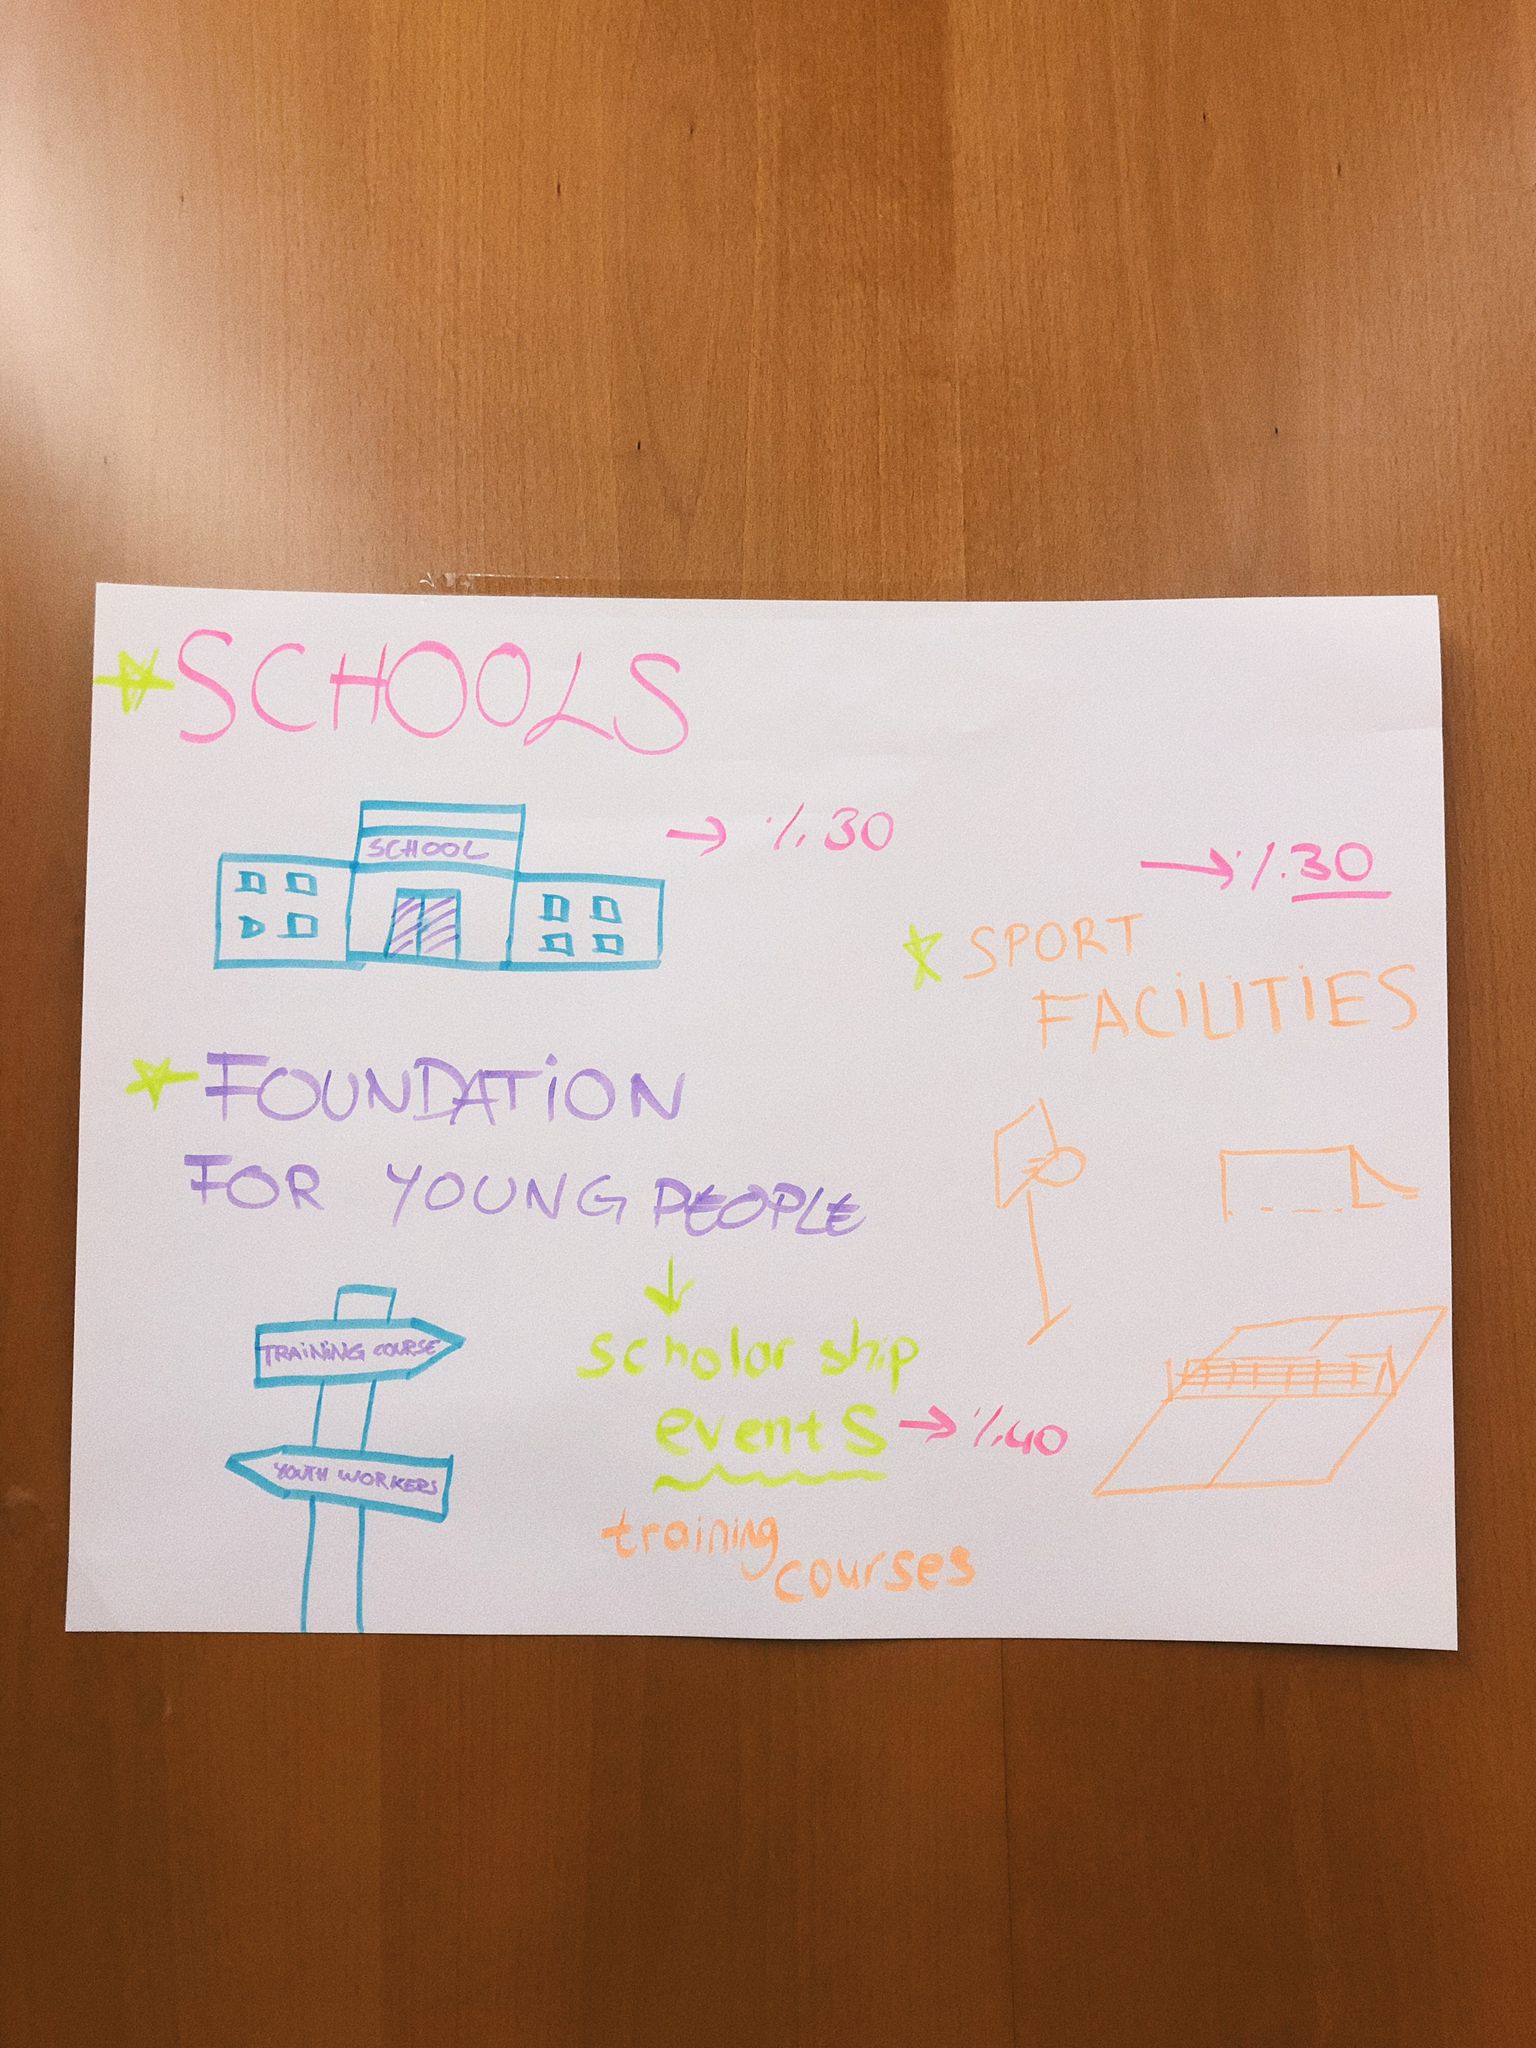 SCHOOLS
SCHOOL
→ %30
→ %.30
SPORT
FACILITIES
FOUNDATION
FOR YOUNG PEOPLE
↓
scholar ship
events → %40
training
courses
TRAINING COURSE
YOUTH WORKERS